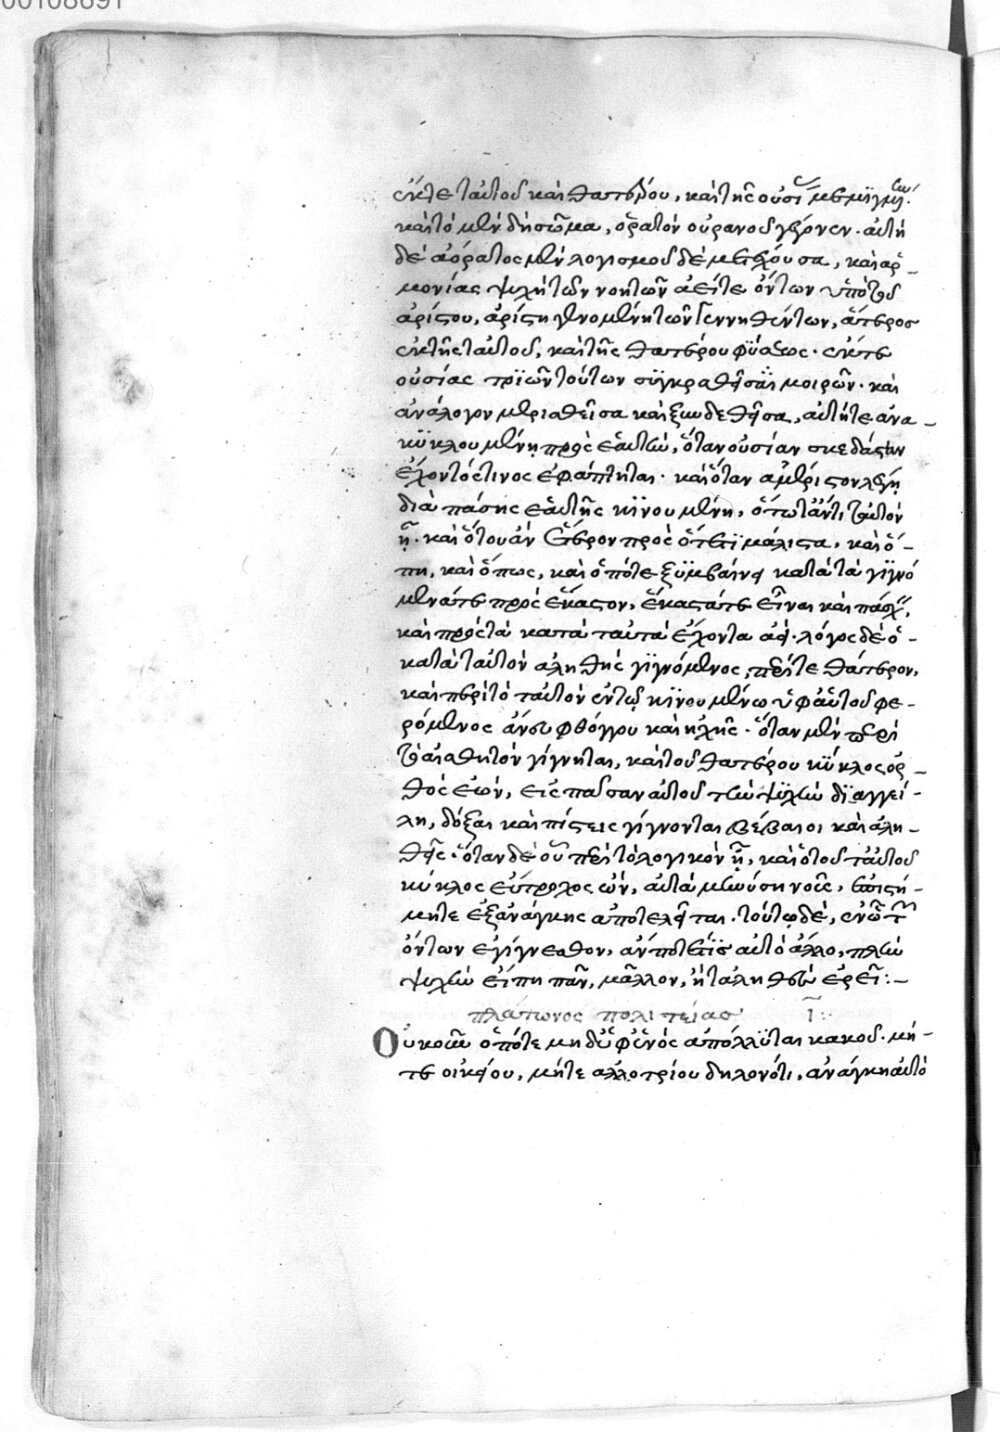 00108691
ἔκ τε ταὐτοῦ καὶ θατέρου, καὶ τῆς οὐσί μεμιγμ
καὶ τὸ μὲν δὴ σῶμα, ὁρατὸν οὐρανοῦ γέγονεν. αὐτὴ
δὲ ἀόρατος μὲν λογισμοῦ δὲ μετέχουσα, καὶ ἁρ-
μονίας ψυχὴ τῶν νοητῶν ἀεί τε ὄντων ὑπὸ τοῦ
ἀρίστου, ἀρίστη γενομένη τῶν γεννηθέντων, ἅτε πρὸς
ἐκ τῆς ταὐτοῦ, καὶ τῆς θατέρου φύσεως. ἔκ τε
οὐσίας τριῶν τούτων συγκραθεῖσα μοιρῶν. καὶ
ἀνάλογον μερισθεῖσα καὶ ξυνδεθεῖσα, αὐτή τε ἀνα-
κυκλουμένη πρὸς ἑαυτὴν, ὅταν οὐσίαν σκεδαστὴν
ἔχοντός τινος ἐφάπτηται. καὶ ὅταν ἀμέριστον λέγει
διὰ πάσης ἑαυτῆς κινουμένη, ὅτῳ τ' ἄν τι ταὐτὸν
ᾖ. καὶ ὅτου ἂν ἕτερον πρὸς ὅτι τε μάλιστα, καὶ ὅ-
πη, καὶ ὅπως, καὶ ὁπότε ξυμβαίνει κατὰ τὰ γιγνό
μενά τε πρὸς ἕκαστον, ἕκαστά τε εἶναι καὶ πάσχ,
καὶ πρὸς τὰ κατὰ ταὐτὰ ἔχοντα ἀεί. λόγος δὲ ὁ-
κατὰ ταὐτὸν ἀληθὴς γιγνόμενος, περί τε θάτερον,
καὶ περὶ τὸ ταὐτὸν ἐν τῷ κινουμένῳ ὑφ' αὑτοῦ φε-
ρόμενος ἄνευ φθόγγου καὶ ἠχῆς. ὅταν μὲν περὶ
τὸ αἰσθητὸν γίγνηται, καὶ τοῦ θατέρου κύκλος ὀρ-
θὸς ἐών, εἰς πᾶσαν αὐτοῦ τὴν ψυχὴν διαγγεί-
λῃ, δόξαι καὶ πίστεις γίγνονται βέβαιοι καὶ ἀλη-
θεῖς. ὅταν δὲ οὖν περὶ τὸ λογικὸν ᾖ, καὶ ὁ τοῦ ταὐτοῦ
κύκλος εὔτροχος ὢν, αὐτὰ μηνύσῃ νοῦς, ἐπιστή-
μη τε ἐξ ἀνάγκης ἀποτελεῖται. τούτῳ δὲ, ἐν ᾧ τῶν
ὄντων ἐγίγνεσθον, ἄν ποτέ τις αὐτὸ ἄλλο, πλὴν
ψυχὴν εἴπῃ πᾶν, μᾶλλον, ἢ τἀληθὲς ἐρεῖ:-
πλάτωνος πολιτείας ι:
Οὐκοῦν ὁπότε μηδ' ὑφ' ἑνὸς ἀπόλλυται κακοῦ. μή-
τε οἰκείου, μήτε ἀλλοτρίου δηλονότι, ἀνάγκη αὐτὸ